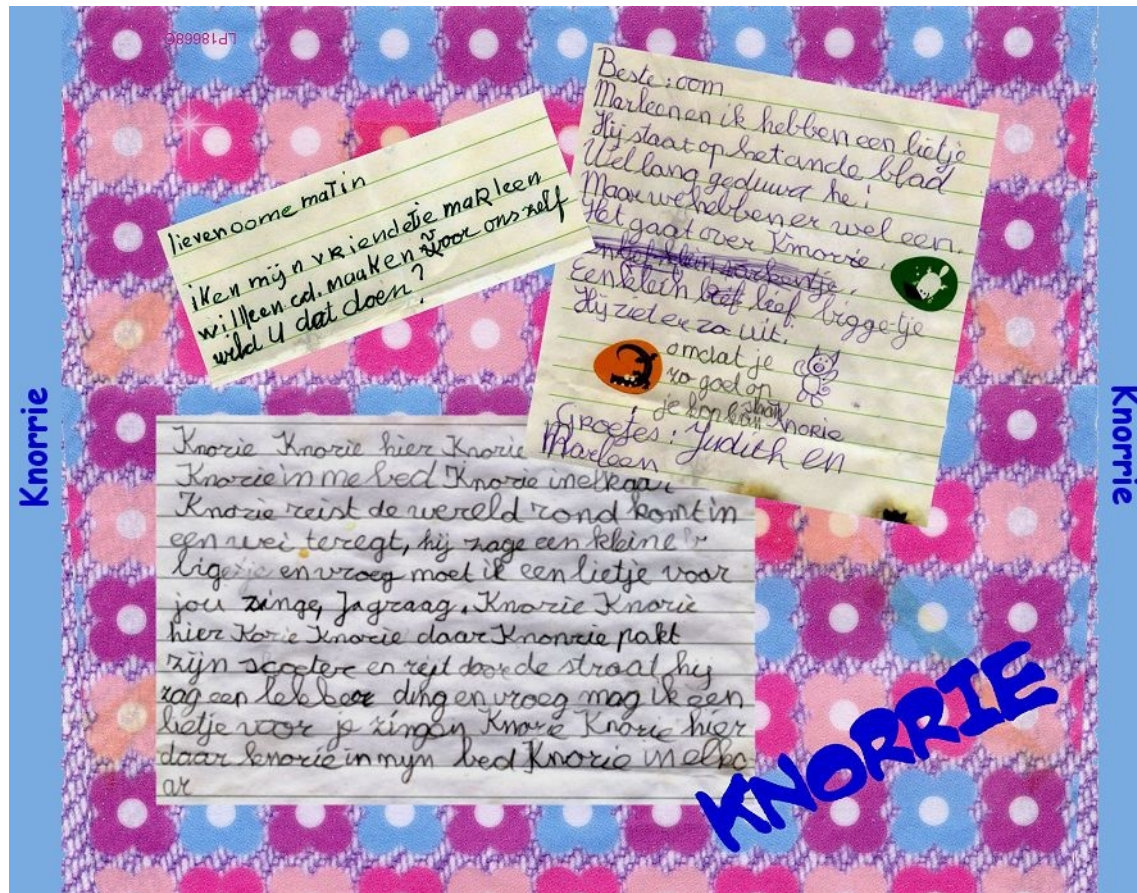 LP18668G
Knorrie
lieven oome matin
ik en mijn vriendetje maRleen
willeen cd. maaken voor ons zelf
wild U dat doen?
Beste: oom
Marleen en ik hebben een lietje
Hij staat op het ande blad
Wel lang geduurd he!
Maar we hebben er wel een.
Het gaat over Knorrie.
Een klein leef biggetje
Hij ziet er zo uit:
omdat je
zo goet op
je kop kan
Knorie
Groetjes: Judith en
Marleen
Knorie Knorie hier Knorie
Knorie in me bed Knorie in elkaar
Knorie reist de wereld rond komt in
een wei teregt, hij zage een kleine
bigetje en vroeg moet ik een lietje voor
jou zinge, Ja graag. Knorie Knorie
hier Korie Knorie daar Knonrie pakt
zijn scooter en rijt door de straat hij
zag een lekker ding en vroeg mag ik een
lietje voor je zingen Knorie Knorie hier
daar knorie in mijn bed Knorie in elka
ar
KNORRIE
Knorrie